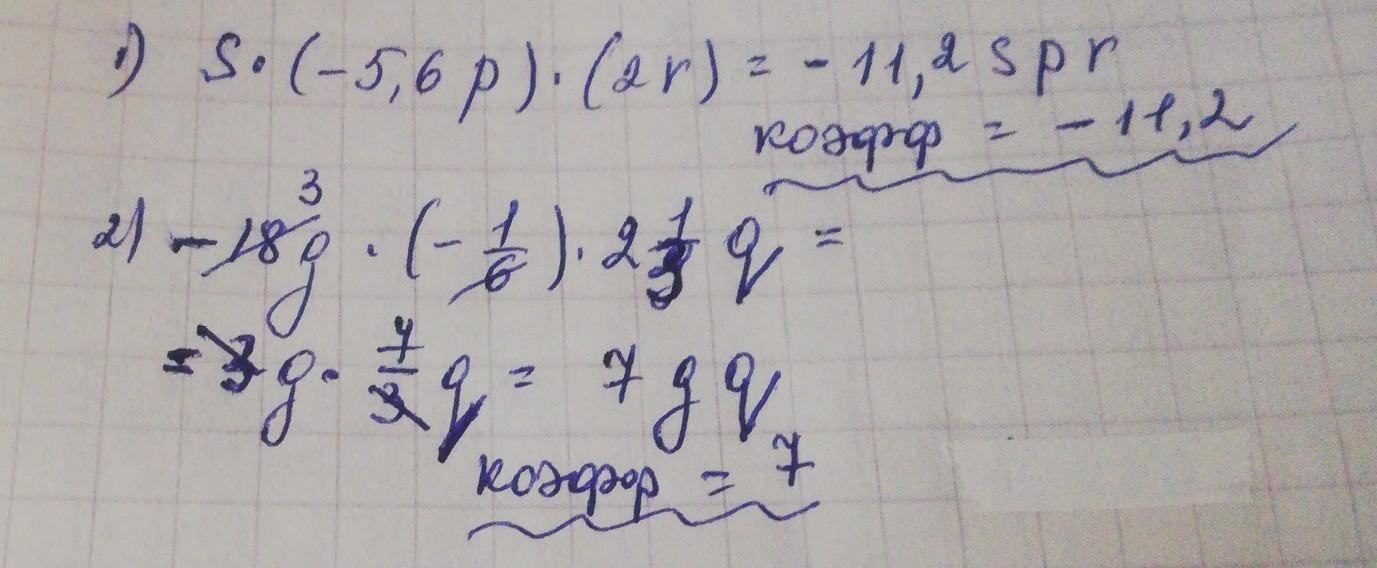 1) S·(-5,6p)·(2r) = -11,2 spr
коэфф = -11,2
2) -18³g · (-1/6) · 2 1/3 q =
= 3g · 7/3 q = 7gq
коэфф = 7